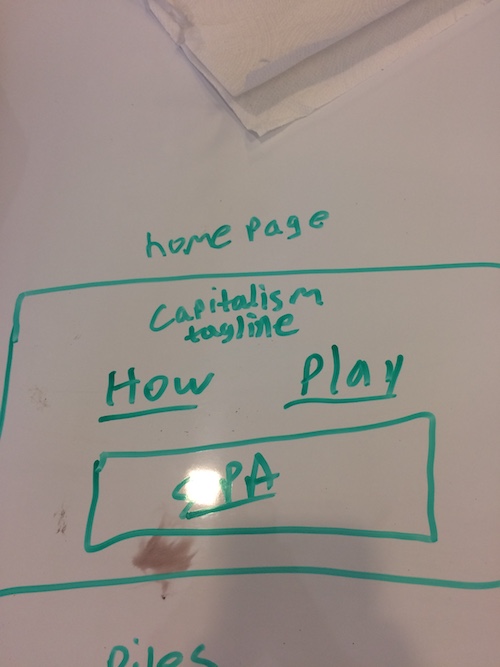 home page
Capitalism
tagline
How Play
SPA